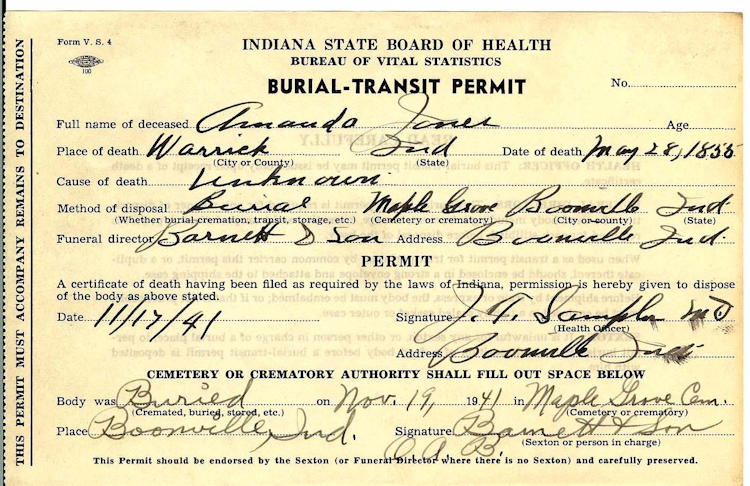 Form V. S. 4
100
INDIANA STATE BOARD OF HEALTH
BUREAU OF VITAL STATISTICS
BURIAL-TRANSIT PERMIT
No.
Full name of deceased Amanda Jones Age
Place of death Warrick Ind Date of death May 28, 1855
(City or County) (State)
Cause of death Unknown
Method of disposal Burial Maple Grove Boonville Ind
(Whether burial, cremation, transit, storage, etc.) (Cemetery or crematory) (City or county) (State)
Funeral director Barnett & Son Address Boonville Ind
PERMIT
A certificate of death having been filed as required by the laws of Indiana, permission is hereby given to dispose
of the body as above stated.
Date 11/17/41 Signature J. T. Samples MD
(Health Officer)
Address Boonville Ind
CEMETERY OR CREMATORY AUTHORITY SHALL FILL OUT SPACE BELOW
Body was Buried on Nov. 19, 1941 in Maple Grove Cem.
(Cremated, buried, stored, etc.) (Cemetery or crematory)
Place Boonville, Ind. Signature Barnett & Son
(Sexton or person in charge)
O. A. B.
This Permit should be endorsed by the Sexton (or Funeral Director where there is no Sexton) and carefully preserved.
THIS PERMIT MUST ACCOMPANY REMAINS TO DESTINATION